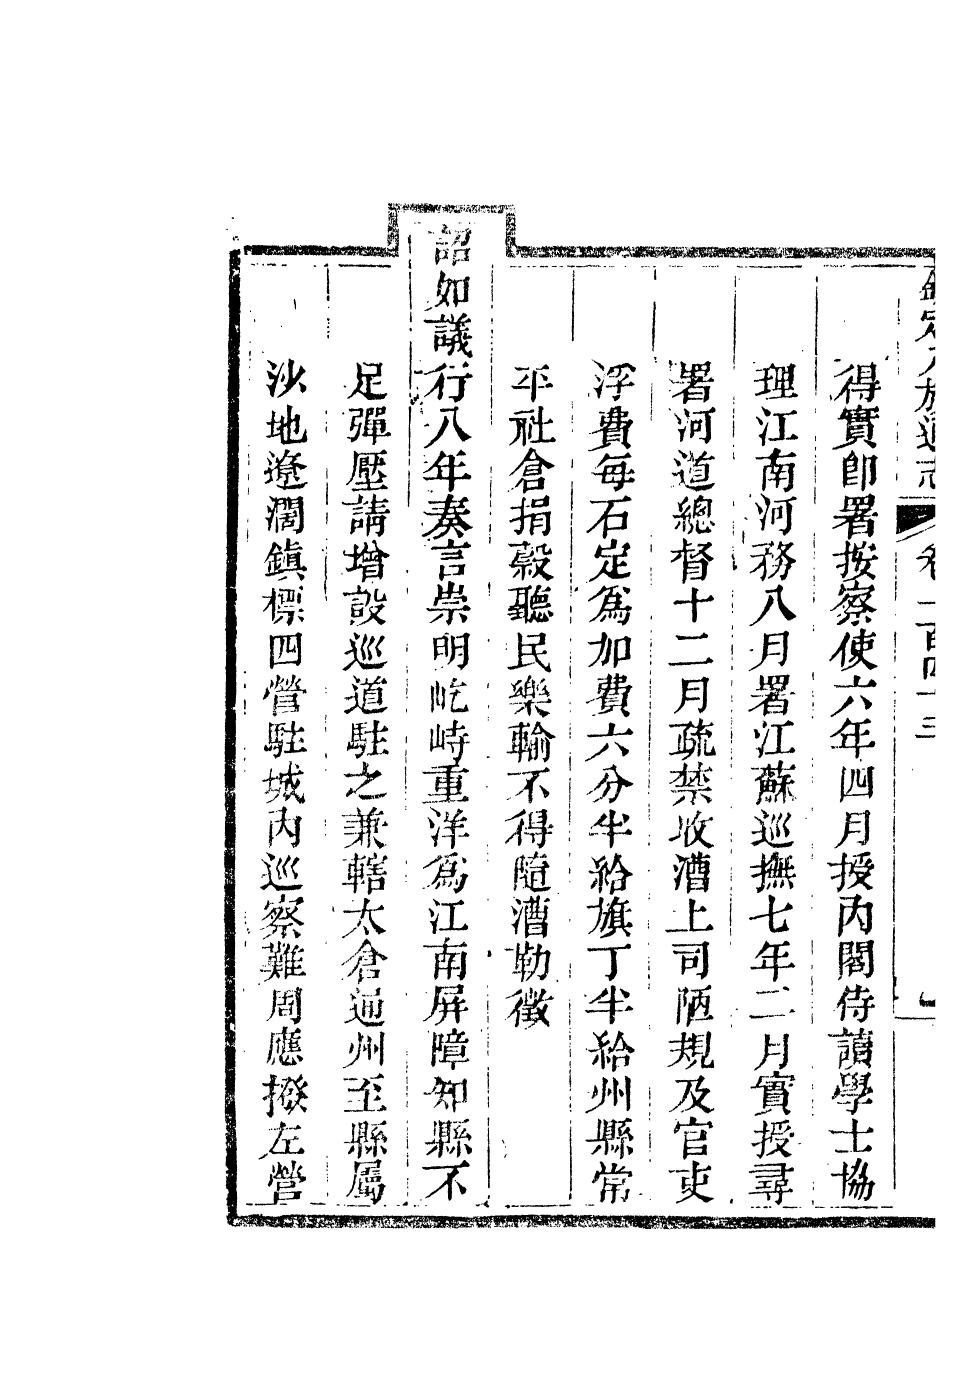 欽定八旗通志 卷一百四十三
得實卽署按察使六年四月授內閣侍讀學士協
理江南河務八月署江蘇巡撫七年二月實授尋
署河道總督十二月疏禁收漕上司陋規及官吏
浮費每石定爲加費六分半給旗丁半給州縣常
平社倉捐穀聽民樂輸不得隨漕勒徵
詔如議行八年奏言崇明屹峙重洋爲江南屏障知縣不
足彈壓請增設巡道駐之兼轄太倉通州至縣屬
沙地遼濶鎮標四營駐城內巡察難周應撥左營